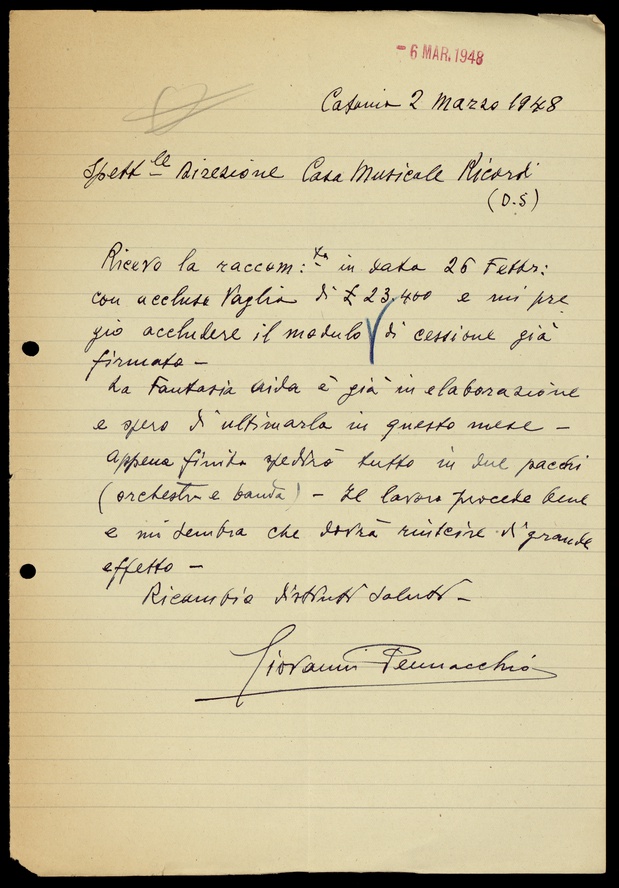 - 6 MAR. 1948
Catania 2 Marzo 1948
Spett.le Direzione Casa Musicale Ricordi
(D.S)
Ricevo la raccom:ta in data 26 Febbr:
con acclusa Vaglia di £ 23,400 e mi pre
gio accludere il modulo di cessione già
firmato –
La Fantasia Aida è già in elaborazione
e spero di ultimarla in questo mese –
Appena finita spedirò tutto in due pacchi
(orchestra e banda) – Il lavoro procede bene
e mi sembra che dovrà riuscire di grande
effetto –
Ricambio distinti saluti –
Giovanni Pennacchio